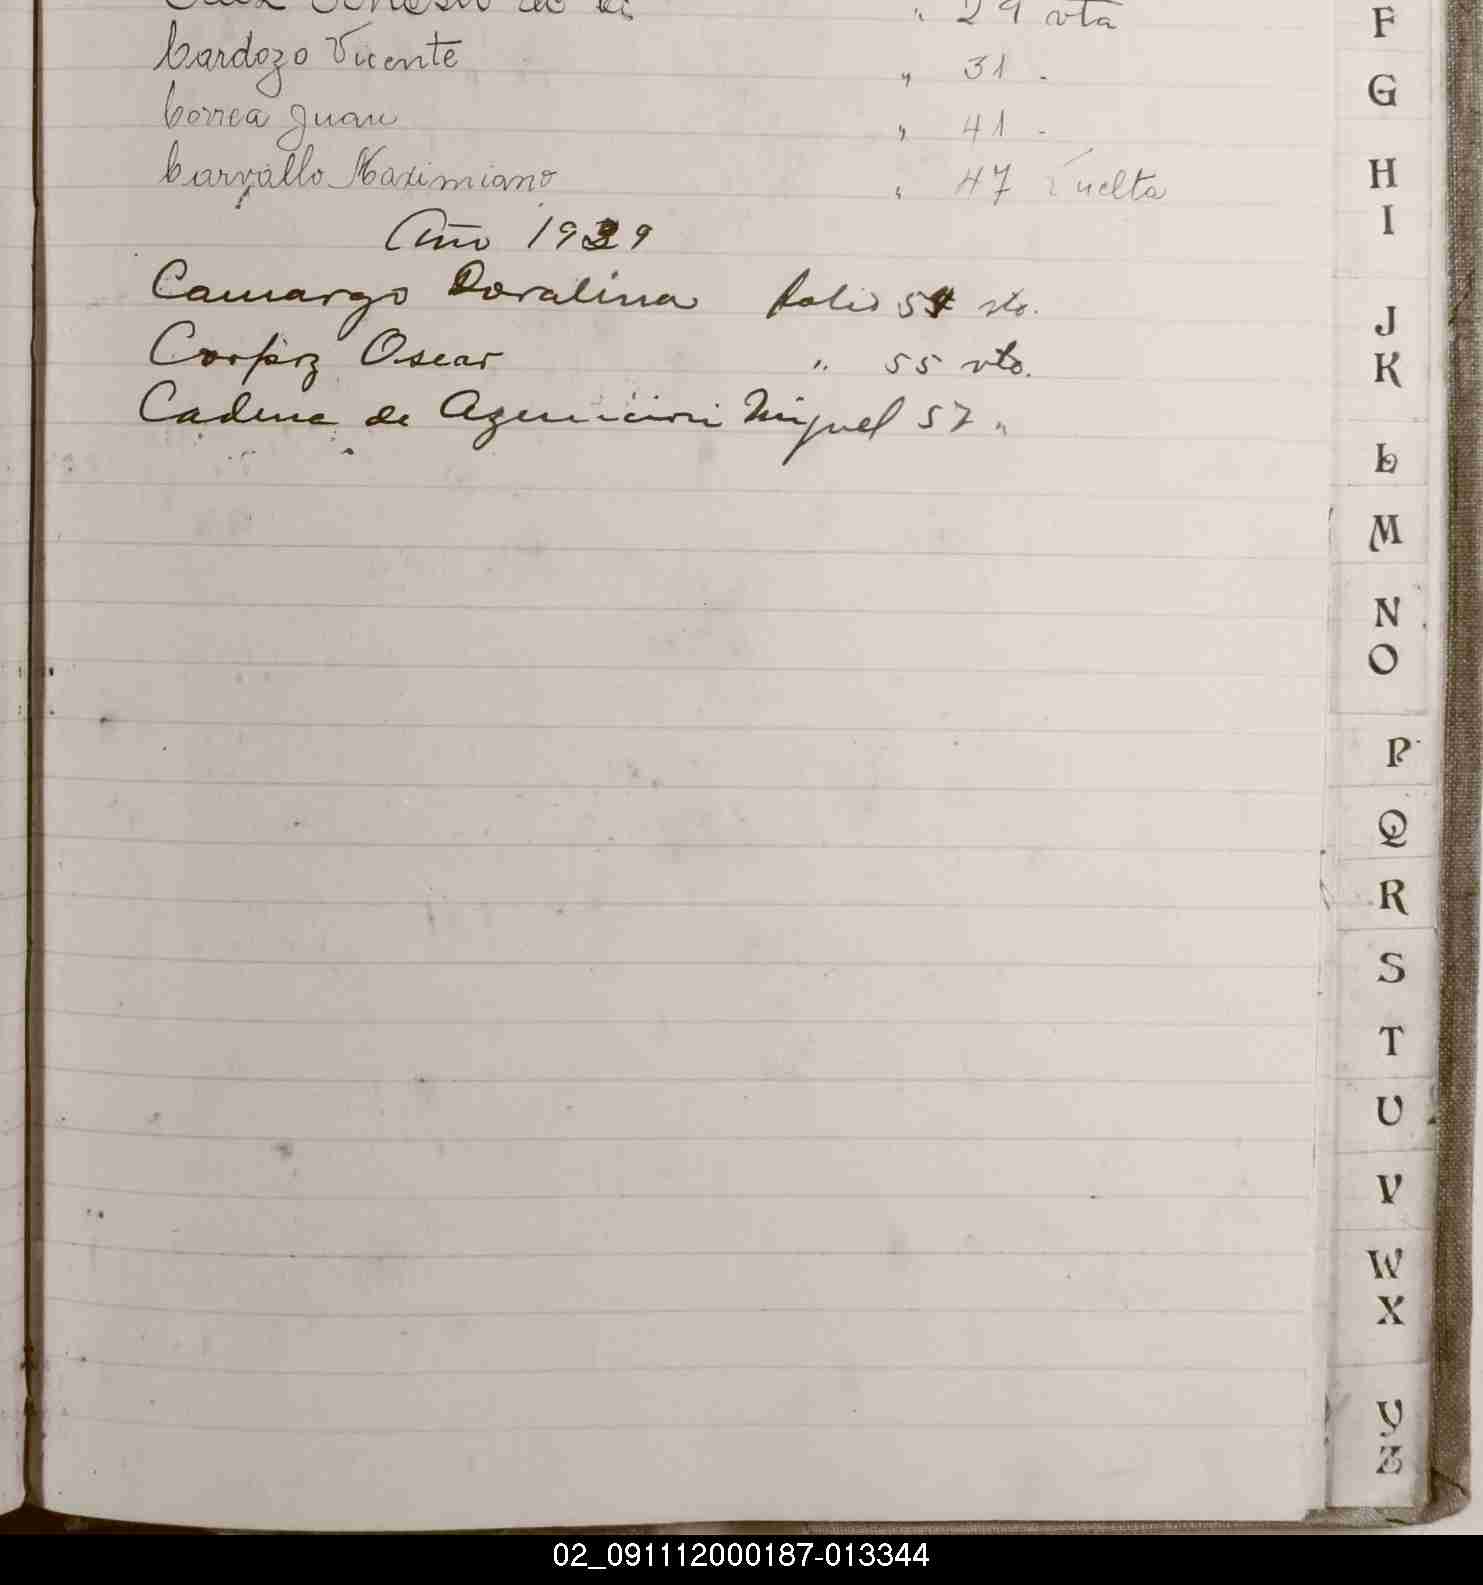 " 29 vta
Cardozo Vicente " 31 -
Correa Juan " 41 -
Carvallo Maximiano " 47 Vuelta
Año 1939
Camargo Doralina folio 54 vto.
Oscar " 55 vto.
Cadena de Miguel 57 "
F
G
H
I
J
K
L
M
N
O
P
Q
R
S
T
U
V
W
X
Y
Z
02_091112000187-013344